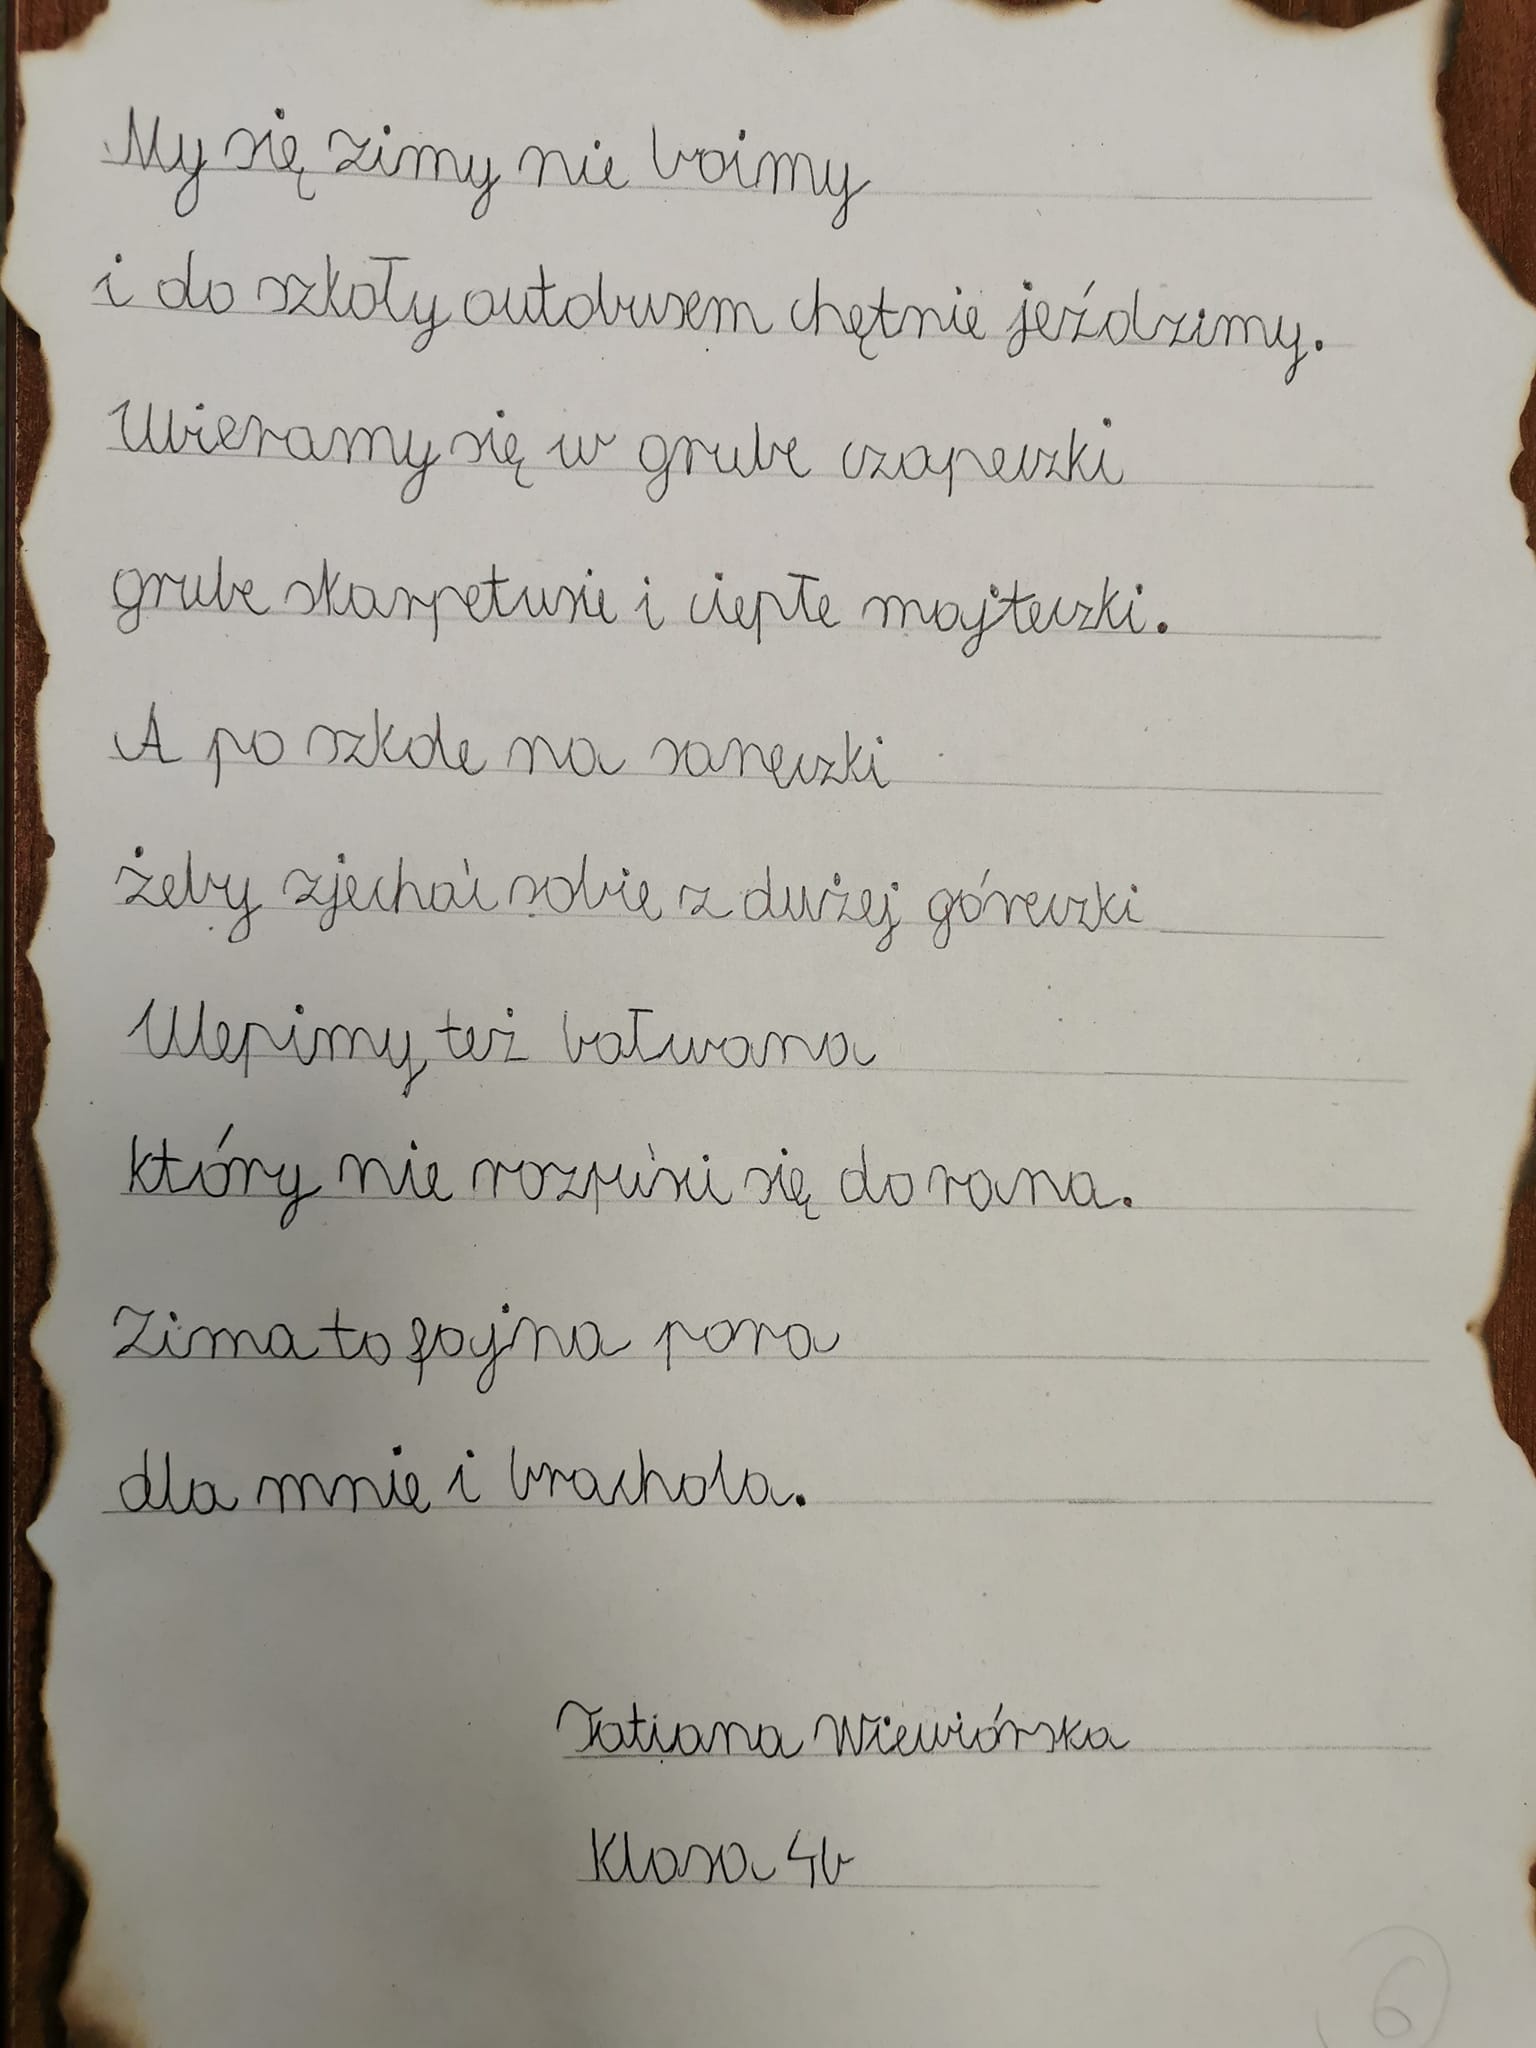 My się zimy nie boimy
i do szkoły autobusem chętnie jeździmy.
Ubieramy się w grube czapeczki
grube skarpetusie i ciepłe majteczki.
A po szkole na saneczki
żeby zjechać sobie z dużej góreczki
Ulepimy też bałwana
który nie rozpuści się do rana.
Zima to fajna pora
dla mnie i brachola.
Tatiana Wiewiórska
Klasa 4b
6